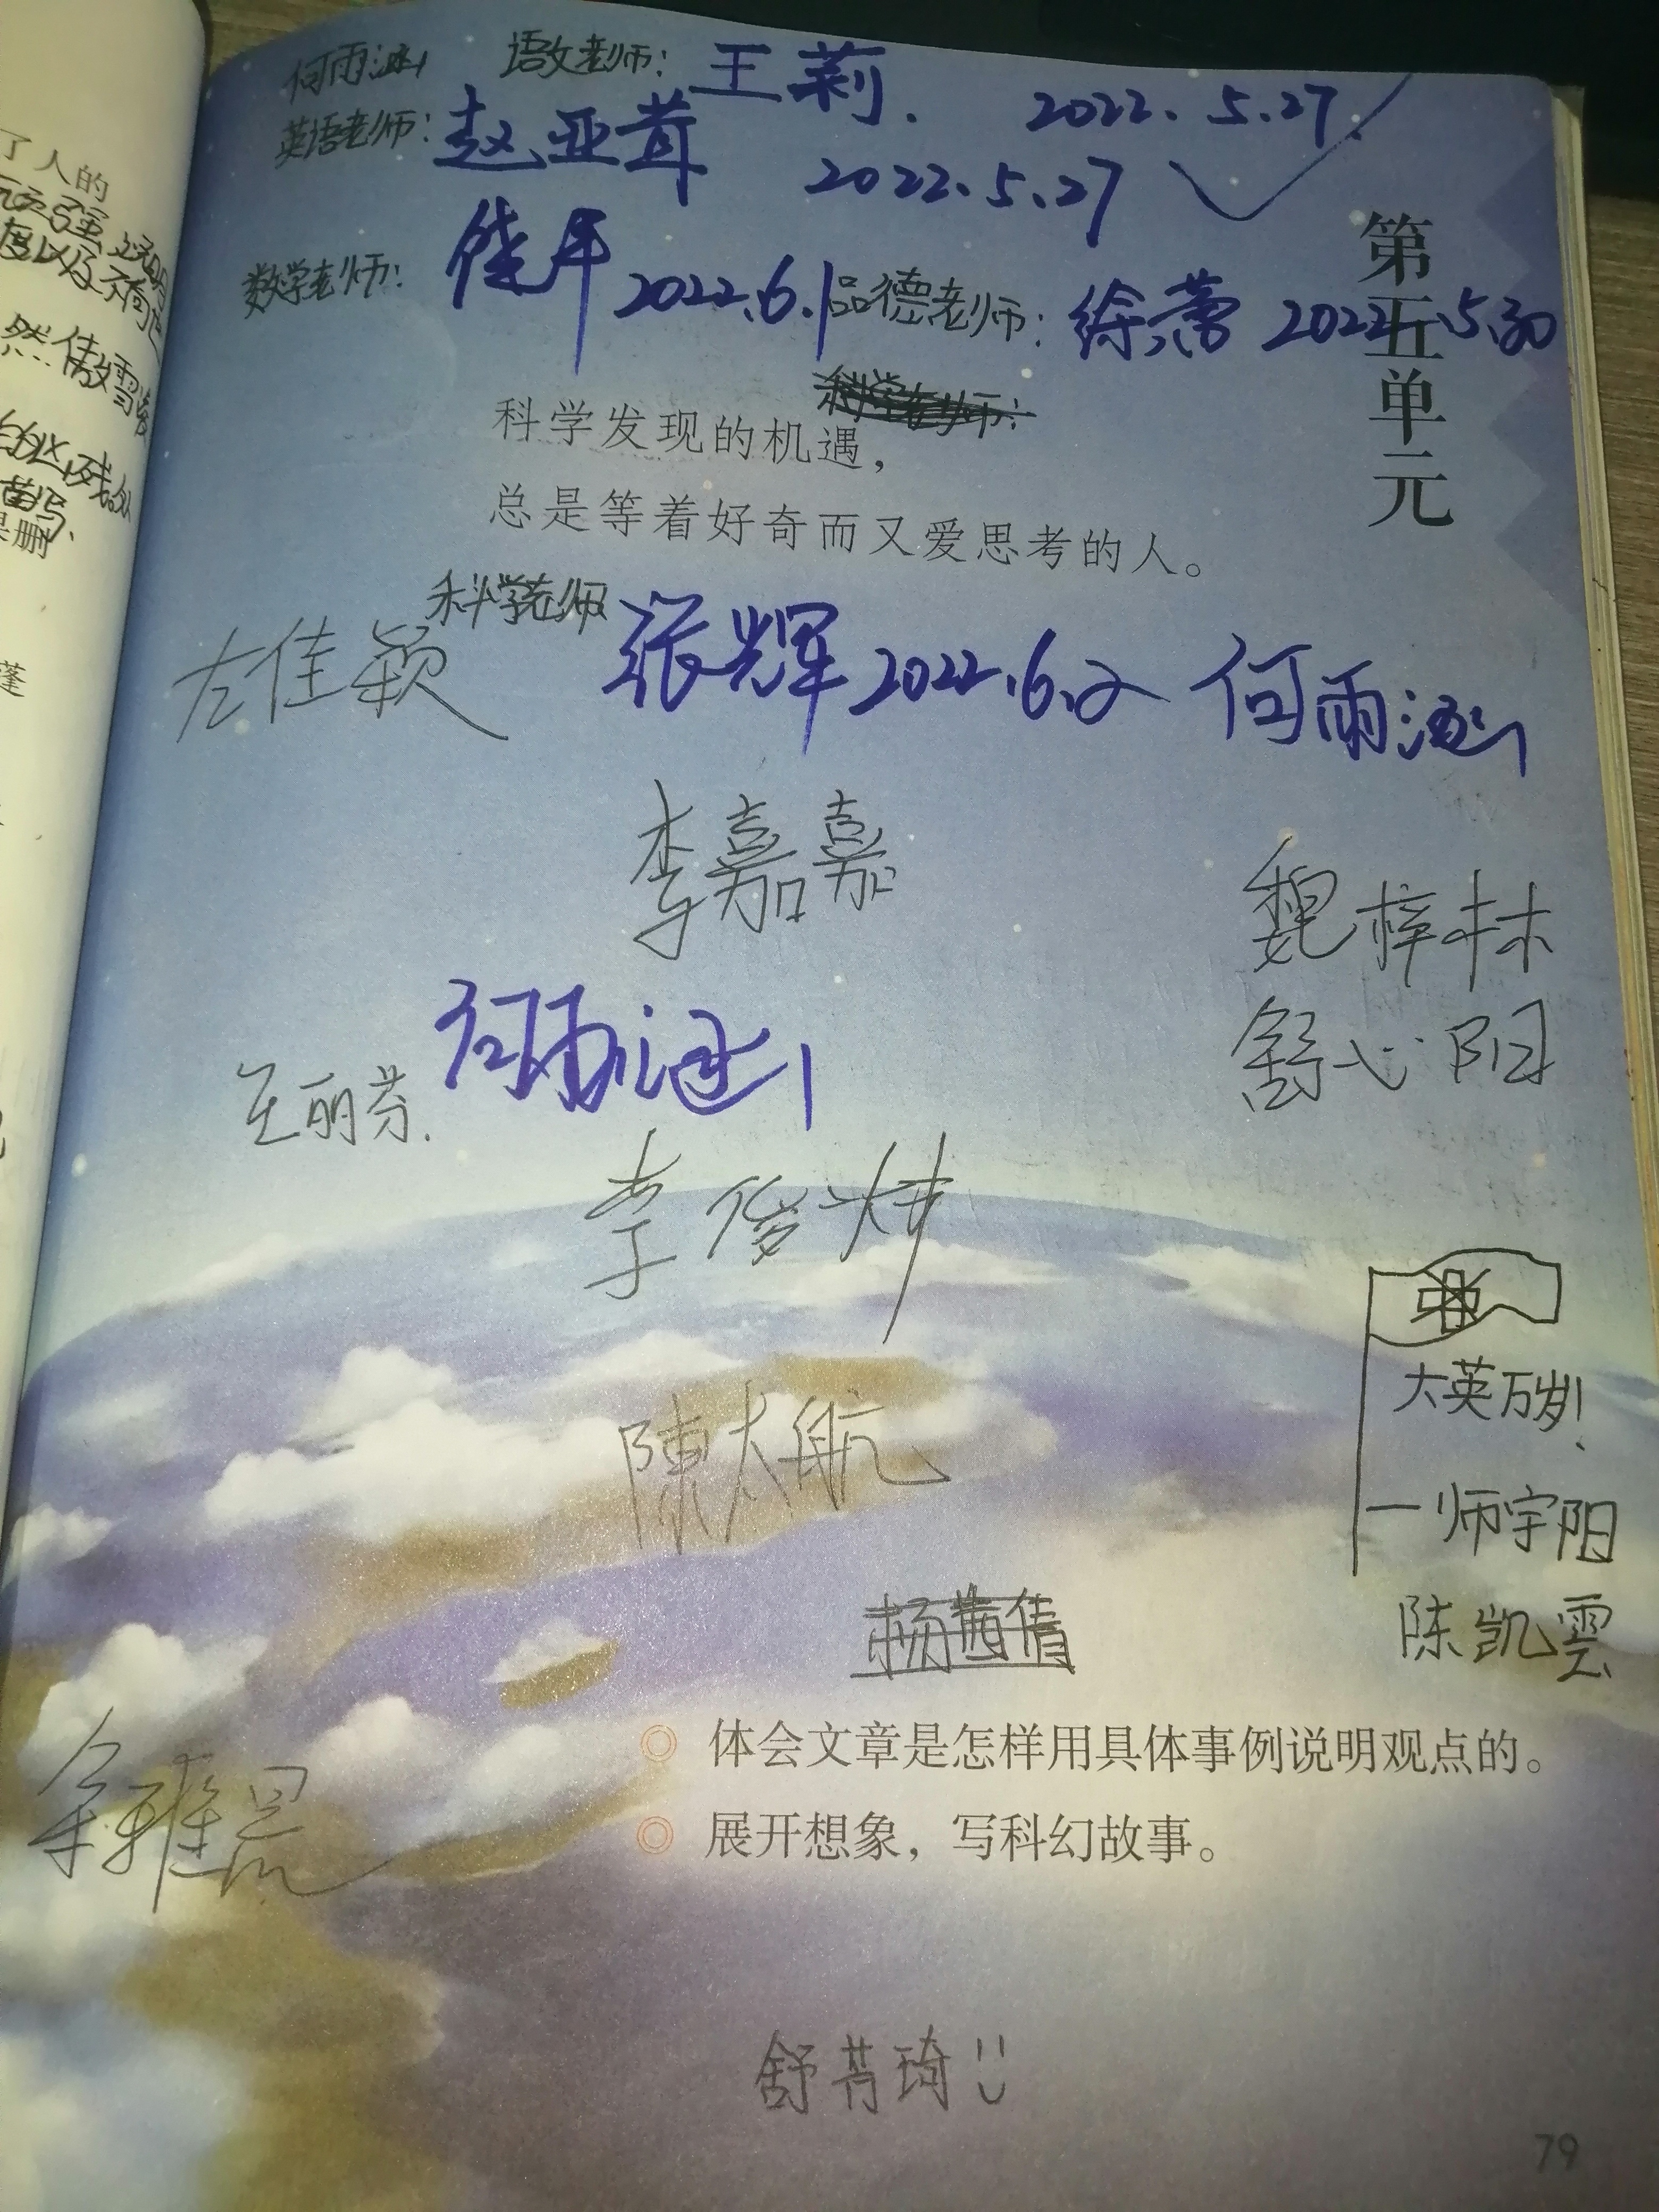 何雨涵 语文老师：王莉. 2022.5.27.
英语老师：赵亚茸 2022.5.27
数学老师： 2022.6.1 品德老师：徐蕾 2022.5.30
第五单元
科学老师：
科学发现的机遇，
总是等着好奇而又爱思考的人。
科学老师 张辉 2022.6.2 何雨涵
左佳颖
李嘉嘉
魏梓林
何雨涵
舒心阳
王丽芬.
李俊炜
大英万岁！
陳太航
一师宇阳
杨茜倩
陈凯雲
体会文章是怎样用具体事例说明观点的。
展开想象，写科幻故事。
舒芮琦
79